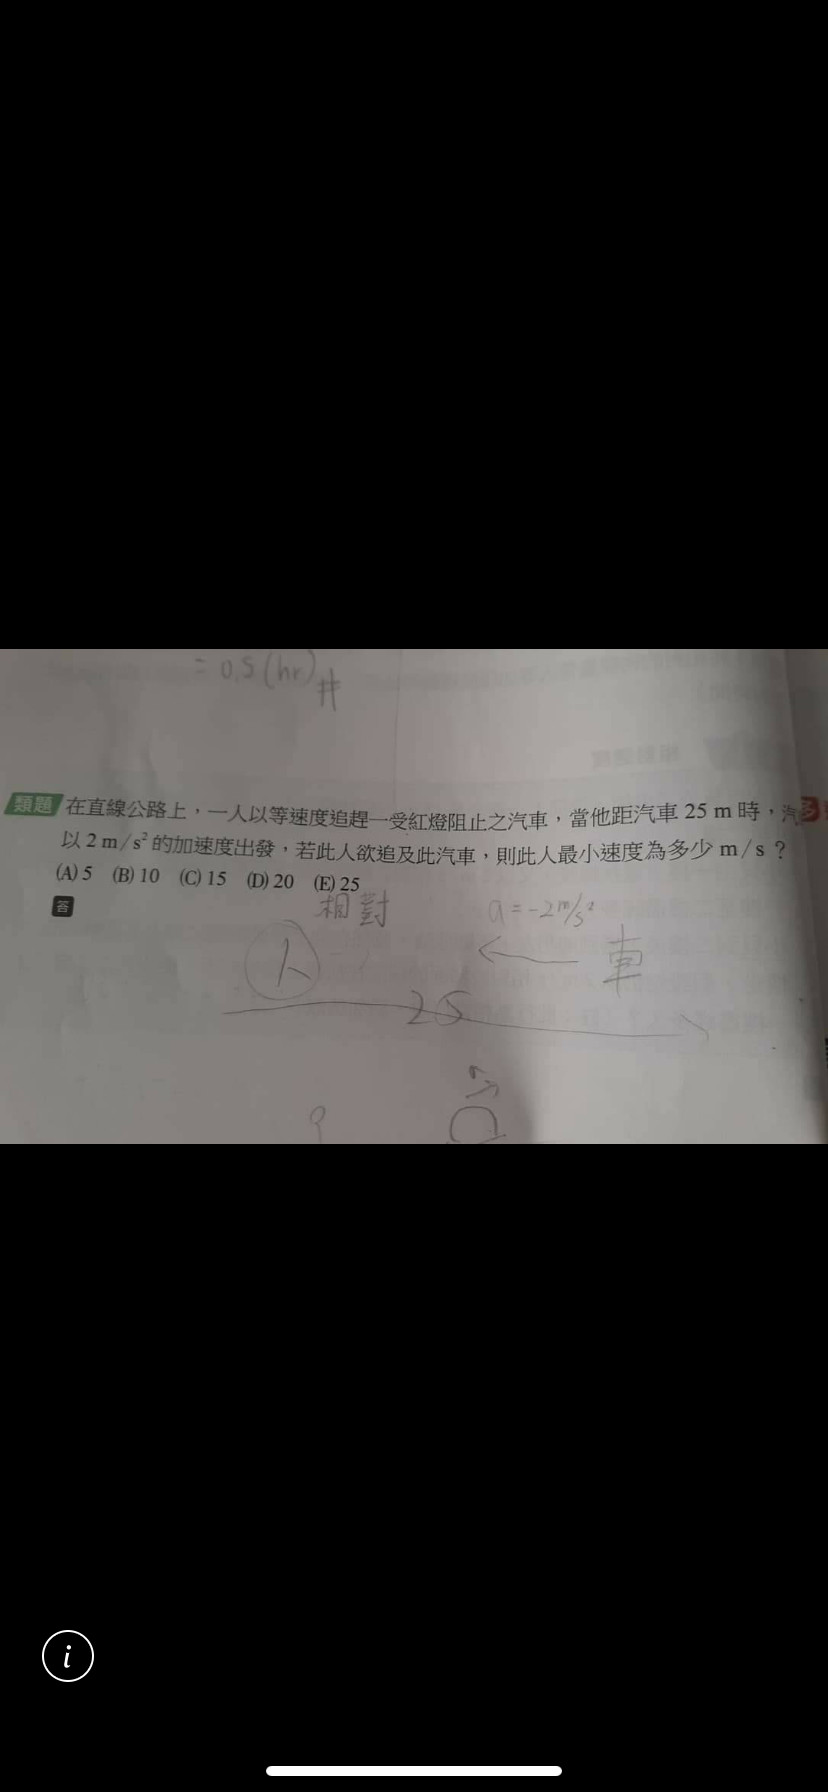 = 0.5 (hr) #
類題 在直線公路上，一人以等速度追趕一受紅燈阻止之汽車，當他距汽車 25 m 時，汽
以 2 m/s² 的加速度出發，若此人欲追及此汽車，則此人最小速度為多少 m/s？
(A) 5 (B) 10 (C) 15 (D) 20 (E) 25
答
相對 a = -2 m/s²
人 車
25
i